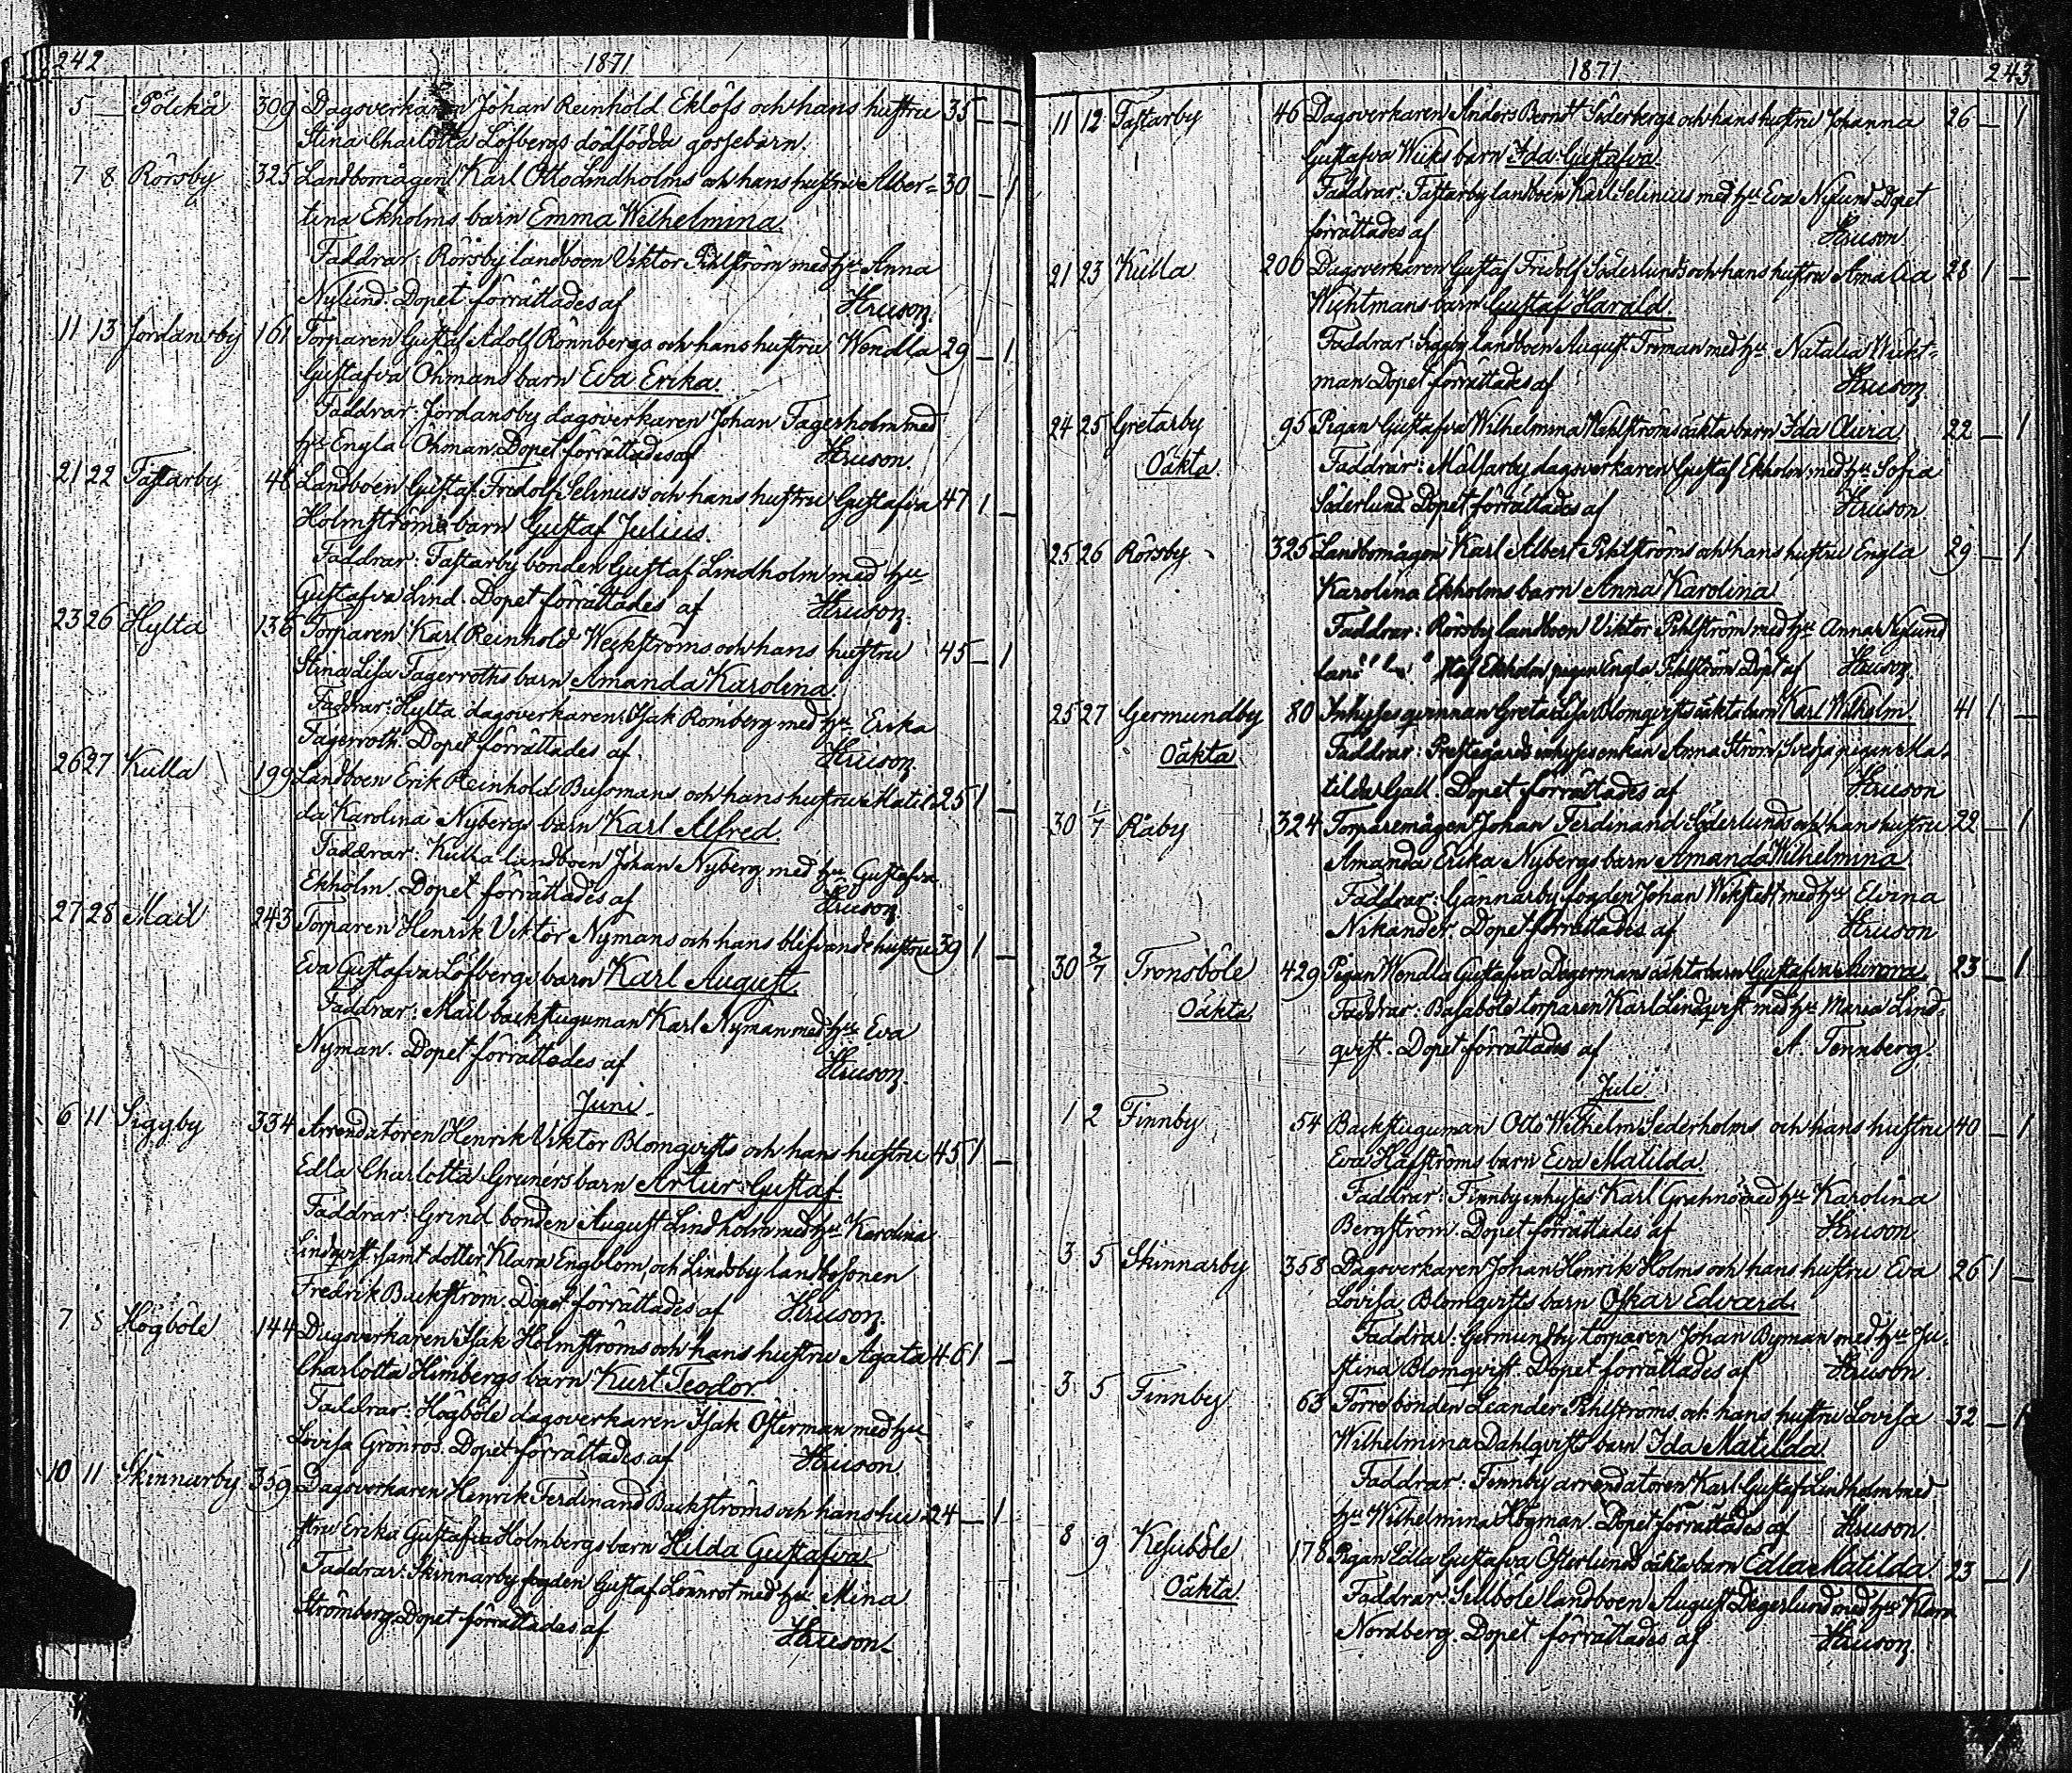 242 1871
5 Pölckå 309 Dagsverkaren Johan Reinhold Eklöfs och hans hustru 35 — —
Stina Charlotta Löfbergs dödfödda gossebarn.
7 8 Rörsby 325 Landbomågen Karl Otto Lindholms och hans hustru Alber= 30 — 1
tina Ekholms barn Emma Wilhelmina.
Faddrar: Rörsby landboen Viktor Pihlström med hu Anna
Nylund. Dopet förrättades af Hruson.
11 13 Jordansby 161 Torparen Gustaf Adolf Rönnbergs och hans hustru Wendla 29 — 1
Gustafva Öhmans barn Eva Erika.
Faddrar: Jordansby dagsverkaren Johan Fagerholm med
hu Engla Öhman. Dopet förrättades af Hruson.
21 22 Tastarby 48 Landboen Gustaf Fridolf Selinus's och hans hustru Gustafva 47 1 —
Holmströms barn Gustaf Julius.
Faddrar: Tastarby bonden Gustaf Lindholm med hu
Gustafva Lind. Dopet förrättades af Hruson.
23 26 Hylta 136 Torparen Karl Reinhold Weckströms och hans hustru 45 — 1
Stina Lisa Fagerroths barn Amanda Karolina.
Faddrar: Hylta dagsverkaren Isak Romberg med hu Erika
Fagerroth. Dopet förrättades af Hruson.
26 27 Kulla 199 Landboen Erik Reinhold Bussmans och hans hustru Matil 25 1 —
da Karolina Nybergs barn Karl Alfred.
Faddrar: Kulla landboen Johan Nyberg med hu Gustafva
Ekholm. Dopet förrättades af Hruson.
27 28 Mail 243 Torparen Henrik Viktor Nymans och hans blifvande hustru 39 1 —
Eva Gustafva Löfbergs barn Karl August.
Faddrar: Mail backstuguman Karl Nyman med hu Eva
Nyman. Dopet förrättades af Hruson.
Juni.
6 11 Siggby 334 Arrendatoren Henrik Viktor Blomqvists och hans hustru 45 1 —
Edla Charlotta Grunérs barn Artur Gustaf.
Faddrar: Grind bonden August Lindholm med hu Karolina
Lindqvist samt dotter Klara Engblom, och Lindsby landbosonen
Fredrik Backström. Dopet förrättades af Hruson.
7 8 Högböle 144 Dagsverkaren Isak Holmströms och hans hustru Agata 46 1 —
Charlotta Himbergs barn Kurt Teodor.
Faddrar: Högböle dagsverkaren Isak Österman med hu
Lovisa Grönros. Dopet förrättades af Hruson
10 11 Skinnarby 359 Dagsverkaren Henrik Ferdinand Backströms och hans hu 24 — 1
stru Erika Gustafva Holmbergs barn Hilda Gustafva
Faddrar: Skinnarby fogden Gustaf Lönnrot med hu Mina
Strömberg. Dopet förrättades af Hruson.
1871 243
11 12 Tastarby 46 Dagsverkaren Anders Berndt Söderbergs och hans hustru Johanna 26 — 1
Gustafva Wiiks barn Ida Gustafva.
Faddrar: Tastarby landboen Karl Selinius med hu Eva Nylund. Dopet
förrättades af Hruson.
21 23 Kulla 200 Dagsverkaren Gustaf Fridolf Söderlunds och hans hustru Amalia 28 1 —
Wichtmans barn Gustaf Harald.
Faddrar: Siggby landboen August Friman med hu Natalia Wickt=
man. Dopet förrättades af Hruson
24 25 Gretarby 95 Pigan Gustafva Wilhelmina Wahlströms oäkta barn Ida Aura. 22 — 1
Oäkta. Faddrar: Malsarby dagsverkaren Gustaf Ekholm med hu Sofia
Söderlund. Dopet förrättades af Hruson
25 26 Rörsby 325 Landbomågen Karl Albert Pihlströms och hans hustru Engla 29 — 1
Karolina Ekholms barn Anna Karolina
Faddrar: Rörsby landboen Viktor Pihlström med hu Anna Nylund
Ekholm pigan Engla Pihlström. Dopet af Hruson.
25 27 Germundby 80 Inhyses qvinnan Greta Lisa Blomqvists oäkta barn Karl Wilhelm 41 1 —
Oäkta. Faddrar: Prestegård inhyses enkan Anna Ström, Svedja pigan Ma=
tilda Gall. Dopet förrättades af Hruson
30 1/7 Råby 324 Torparemågen Johan Ferdinand Söderlunds och hans hustru 22 — 1
Amanda Erika Nybergs barn Amanda Wilhelmina
Faddrar: Gännarby fogden Johan Wikstedt med hu Elvina
Nikander. Dopet förrättades af Hruson
30 2/7 Tronsböle 429 Pigan Wendla Gustafva Degermans oäkta barn Gustafva Aurora. 23 — 1
Oäkta. Faddrar: Basaböle torparen Karl Lindqvist med hu Maria Lind=
qvist. Dopet förrättades af A. Tennberg.
Juli.
1 2 Finnby 54 Backstuguman Otto Wilhelm Sederholms och hans hustru 40 — 1
Eva Hafströms barn Eva Matilda.
Faddrar: Finnby inhyses Karl Grahn med hu Karolina
Bergström. Dopet förrättades af Hruson
3 5 Skinnarby 358 Dagsverkaren Johan Henrik Holms och hans hustru Eva 26 1 —
Lovisa Blomqvists barn Oskar Edvard.
Faddrar: Germundby torparen Johan Byman med hu Ju=
stina Blomqvist. Dopet förrättades af Hruson.
3 5 Finnby 63 Förre bonden Leander Pihlströms och hans hustru Lovisa 32 — 1
Wilhelmina Dahlqvists barn Ida Matilda.
Faddrar: Finnby arrendatoren Karl Gustaf Lindholm med
hu Wilhelmina Högman. Dopet förrättades af Hruson.
8 9 Kesuböle 178 Pigan Edla Gustafva Österlunds oäkta barn Edla Matilda. 23 — 1
Oäkta. Faddrar: Sillböle landboen August Degerlund med hu Klara
Nordberg. Dopet förrättades af Hruson